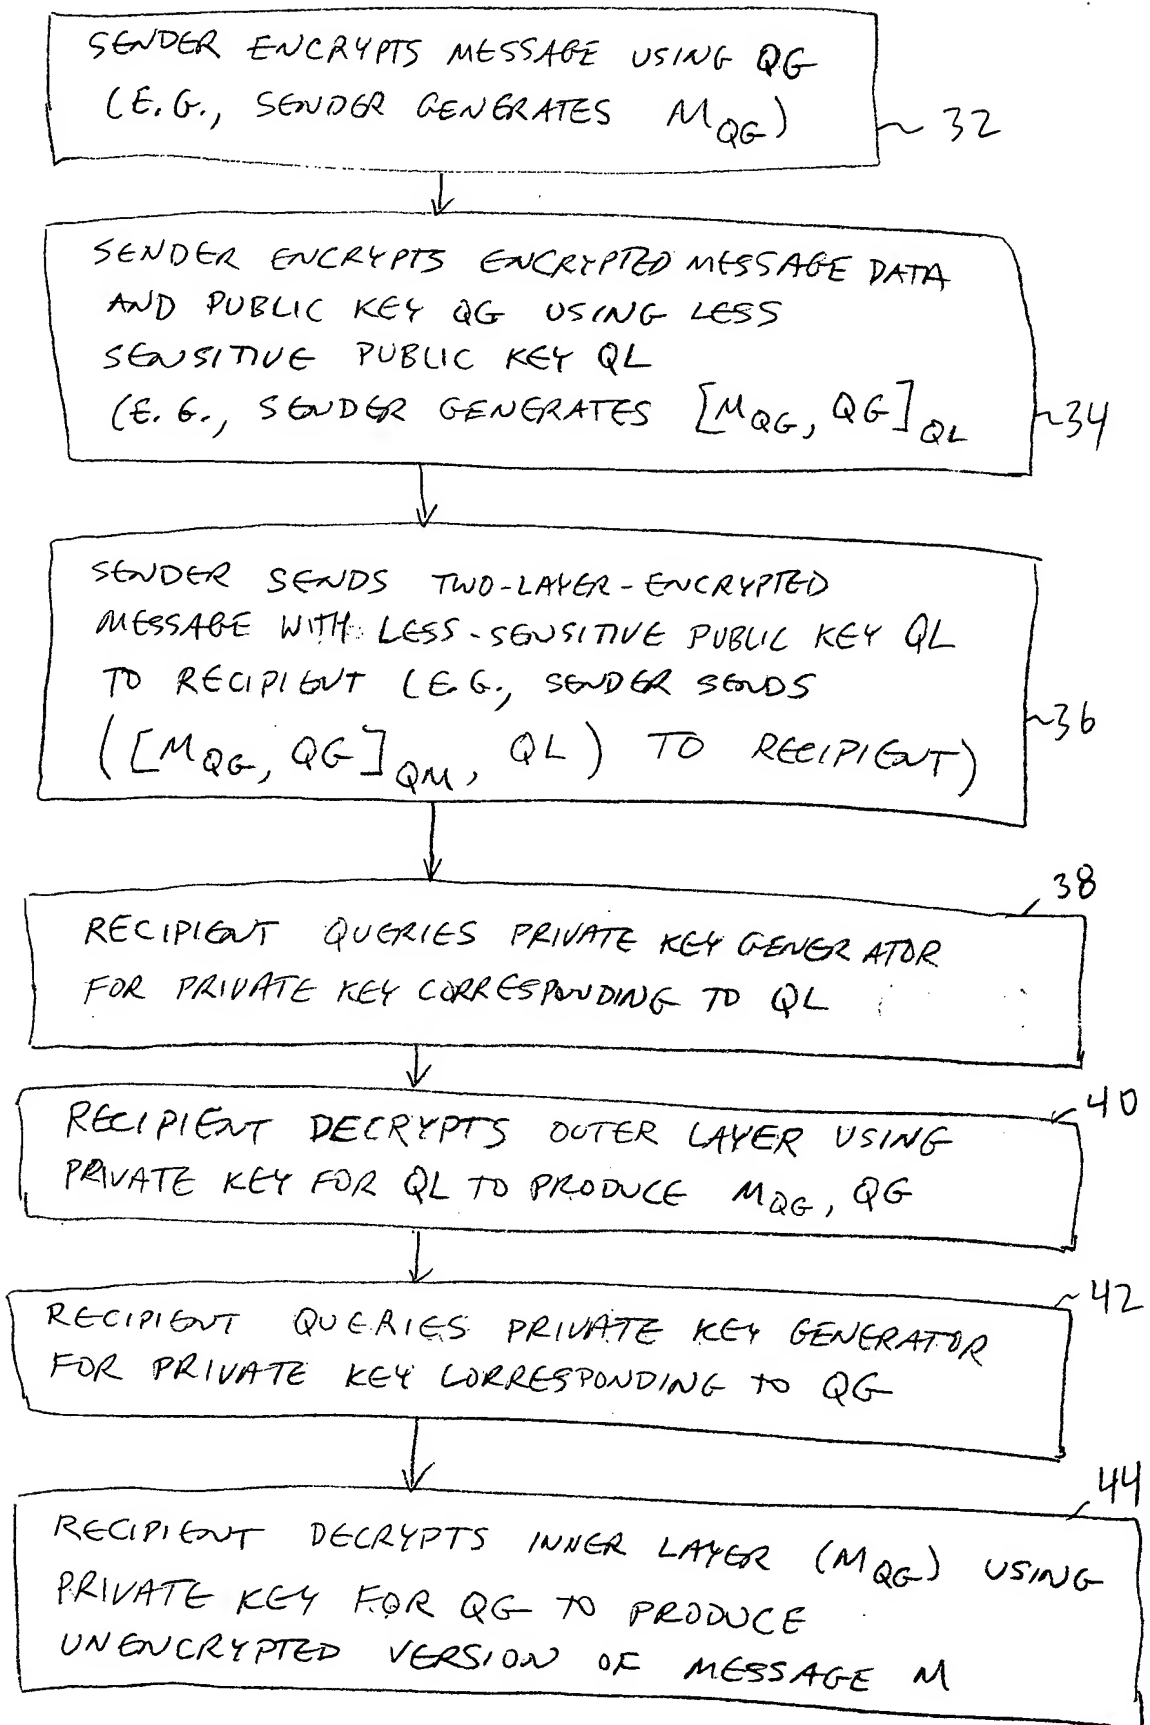 SENDER ENCRYPTS MESSAGE USING QG
(E.G., SENDER GENERATES M_QG)
32
SENDER ENCRYPTS ENCRYPTED MESSAGE DATA
AND PUBLIC KEY QG USING LESS
SENSITIVE PUBLIC KEY QL
(E.G., SENDER GENERATES [M_QG, QG]_QL
34
SENDER SENDS TWO-LAYER-ENCRYPTED
MESSAGE WITH LESS-SENSITIVE PUBLIC KEY QL
TO RECIPIENT (E.G., SENDER SENDS
([M_QG, QG]_QM, QL) TO RECIPIENT)
36
38
RECIPIENT QUERIES PRIVATE KEY GENERATOR
FOR PRIVATE KEY CORRESPONDING TO QL
40
RECIPIENT DECRYPTS OUTER LAYER USING
PRIVATE KEY FOR QL TO PRODUCE M_QG, QG
42
RECIPIENT QUERIES PRIVATE KEY GENERATOR
FOR PRIVATE KEY CORRESPONDING TO QG
44
RECIPIENT DECRYPTS INNER LAYER (M_QG) USING
PRIVATE KEY FOR QG TO PRODUCE
UNENCRYPTED VERSION OF MESSAGE M